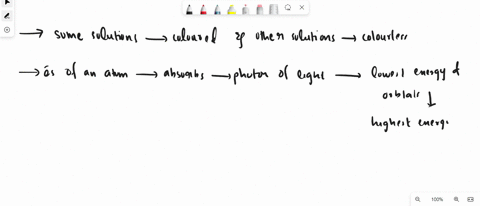 → some solutions → coloured & other solutions → colourless
→ es of an atom → absorbs → photon of light → lowest energy d
orbitals ↓
highest energy
100%